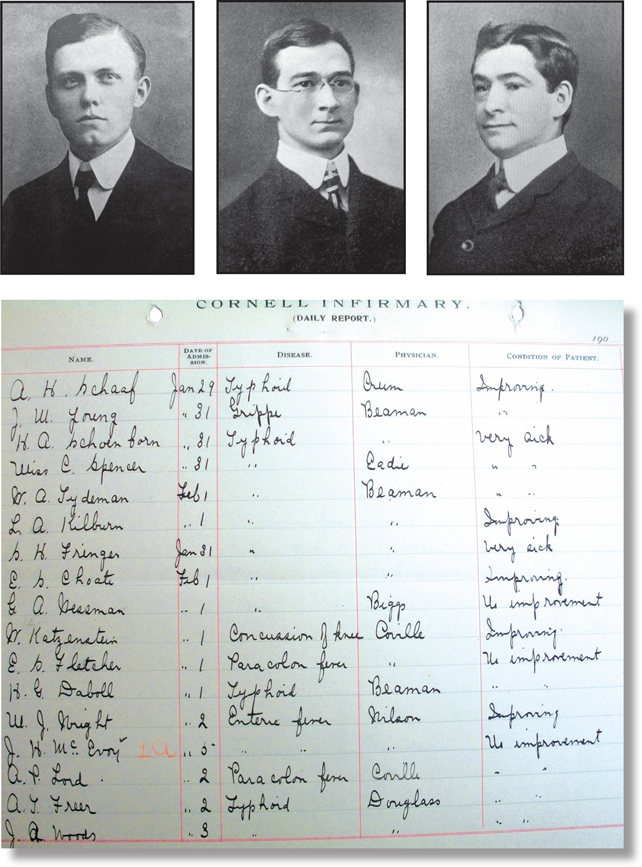 CORNELL INFIRMARY.
(DAILY REPORT.)
190
NAME. DATE OF ADMISSION. DISEASE. PHYSICIAN. CONDITION OF PATIENT.
A. H. Schaaf Jan 29 Typhoid Crum Improving.
J. W. Young " 31 Grippe Beaman "
H. A. Schoenborn " 31 Typhoid " Very sick
Miss C. Spencer " 31 " Eadie " "
W. A. Tydeman Feb 1 " Beaman " "
L. A. Kilburn " 1 " " Improving
S. H. Fringer Jan 31 " " Very sick
C. S. Choate Feb 1 " " Improving.
G. A. Wessman " 1 " Biggs No improvement
W. Katzenstein " 1 Concussion of knee Coville Improving.
E. S. Fletcher " 1 Para colon fever " No improvement
H. G. Daboll " 1 Typhoid Beaman " "
W. J. Wright " 2 Enteric fever Wilson Improving
J. H. McEvoy " 5 " " " No improvement
A. P. Lord. " 2 Para colon fever Coville " "
A. T. Freer " 2 Typhoid Douglass " "
J. A. Woods " 3 " " " "